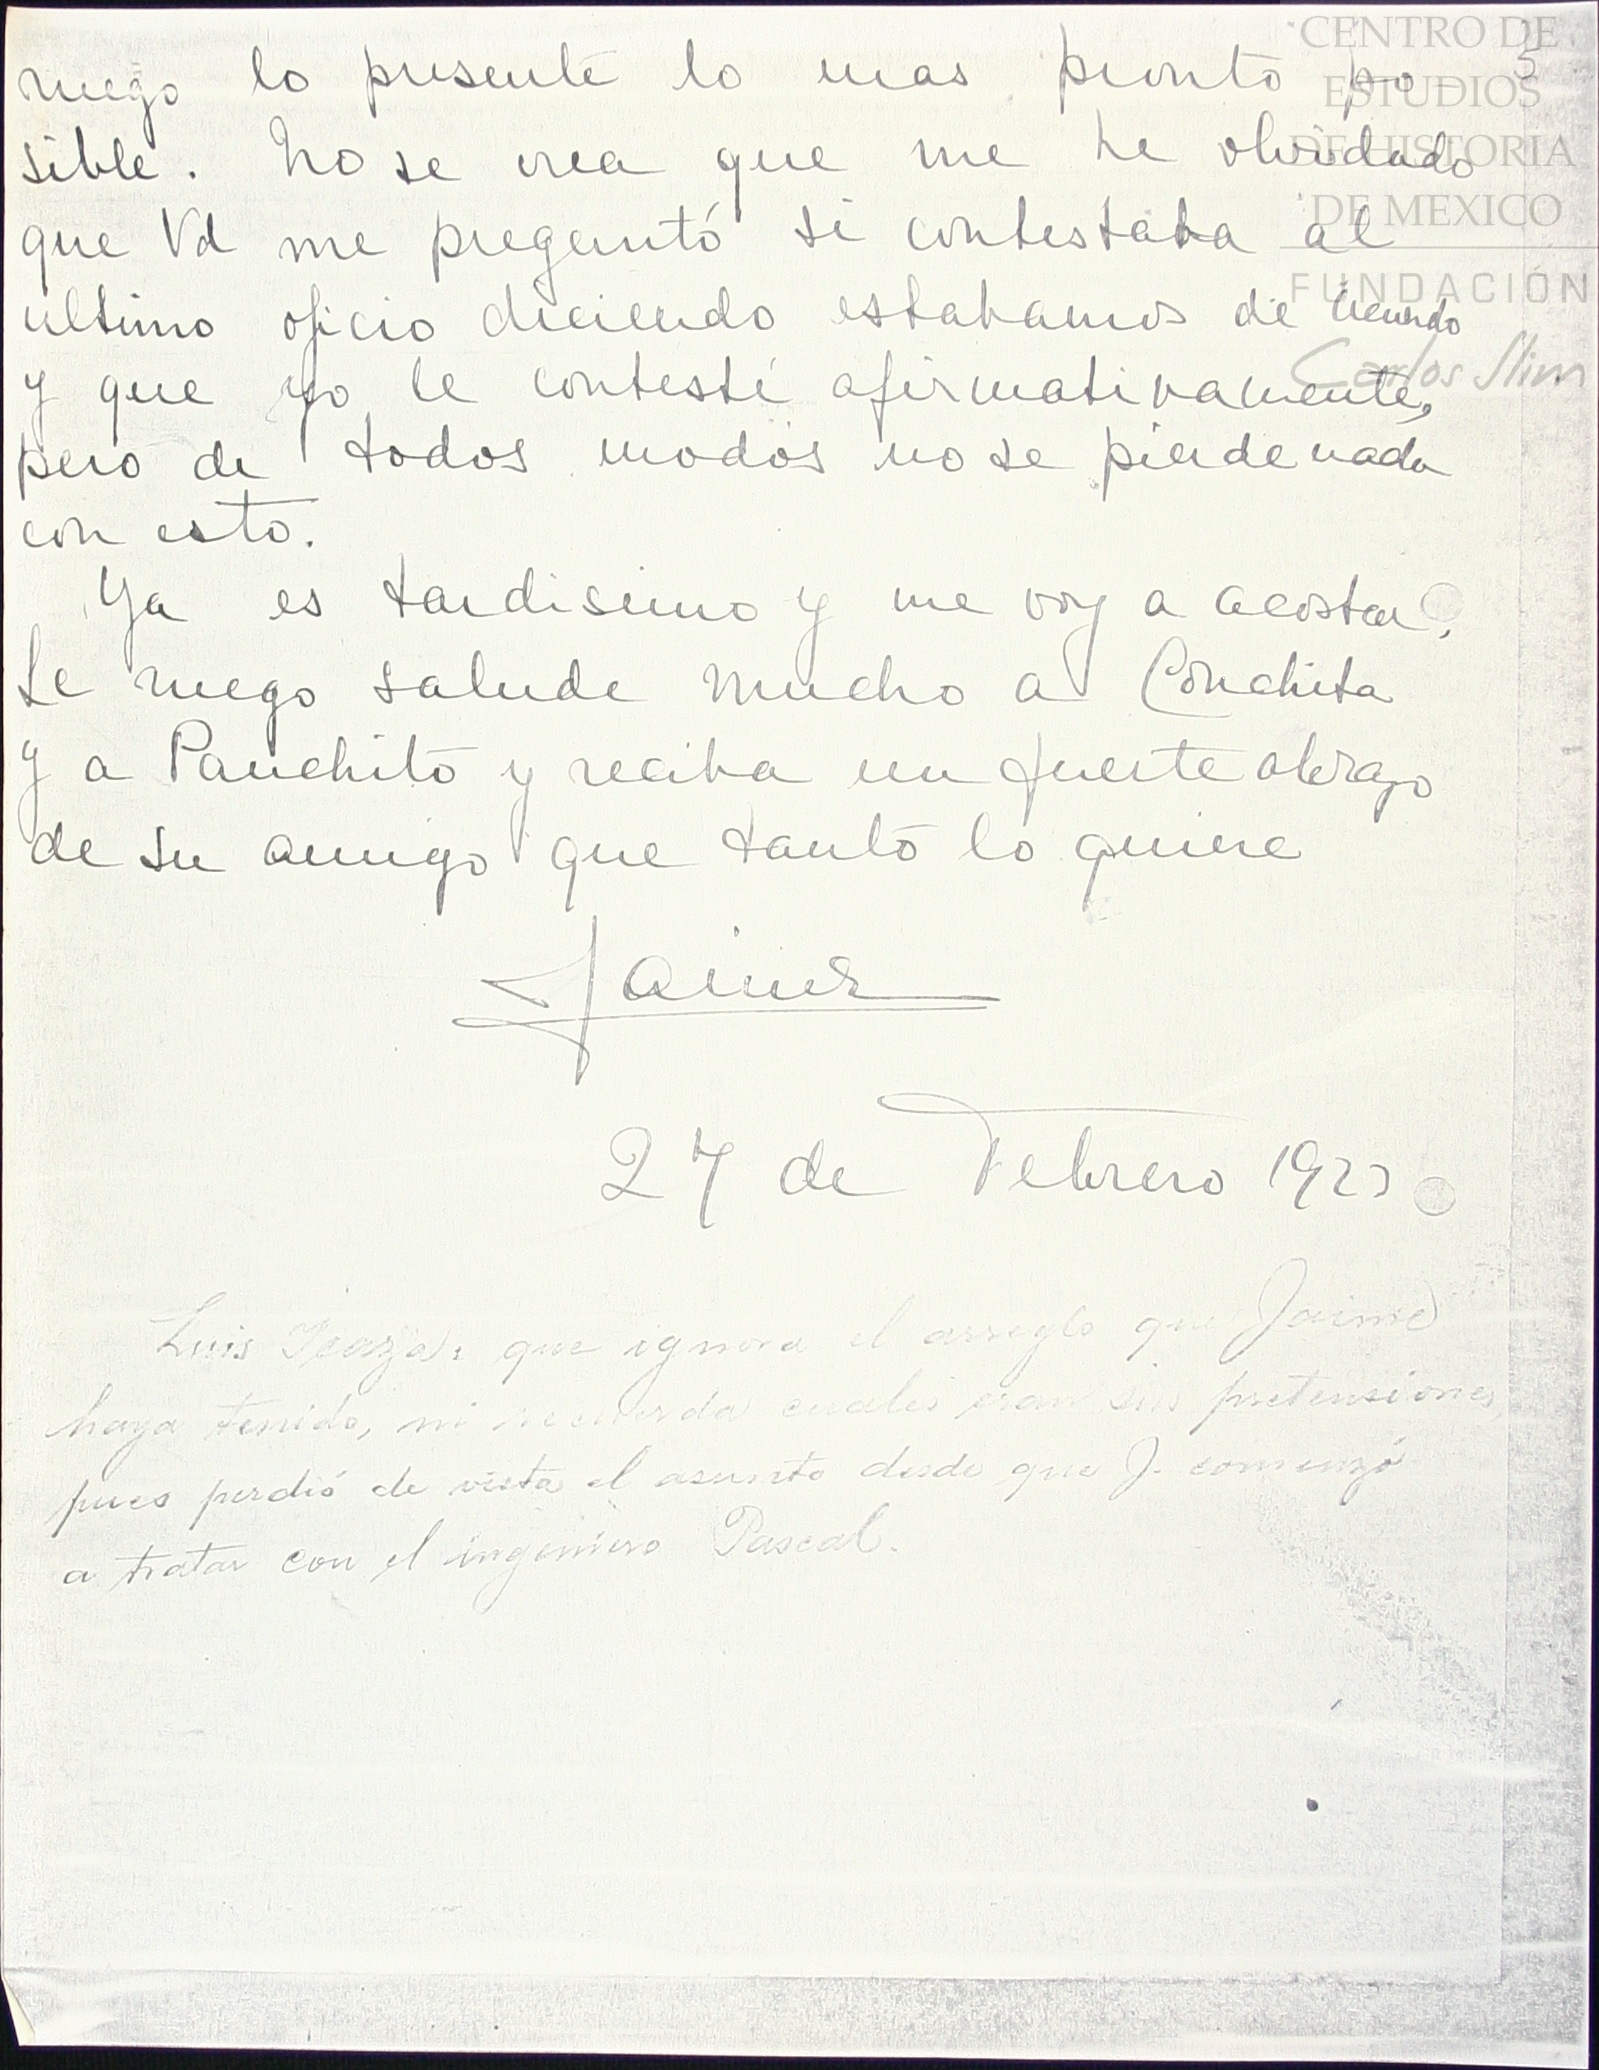 CENTRO DE
ESTUDIOS
DE HISTORIA
DE MEXICO
FUNDACIÓN
Carlos Slim
5
ruego lo presente lo mas pronto po-
sible. No se crea que me he olvidado
que Vd me preguntó si contestaba al
ultimo oficio diciendo estabamos de acuerdo
y que yo le contesté afirmativamente,
pero de todos modos no se pierde nada
con esto.
Ya es tardisimo y me voy a acostar.
Le ruego salude mucho a Conchita
y a Panchito y reciba un fuerte abrazo
de su amigo que tanto lo quiere
Jaime
27 de Febrero 1923
Luis Icaza: que ignora el arreglo que Jaime
haya tenido, ni recuerda cuales eran sus pretensiones,
pues perdió de vista el asunto desde que J. comenzó
a tratar con el ingeniero Pascal.